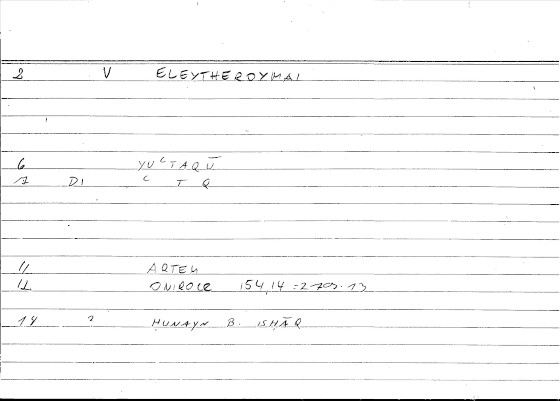 2 V ELEYTHEROYMAI
6 YUʿTAQŪ
7 DI ʿ T Q
11 ARTEM
12 ONIROCR 154,14 =
14 ? ḤUNAYN B. ISḤĀQ